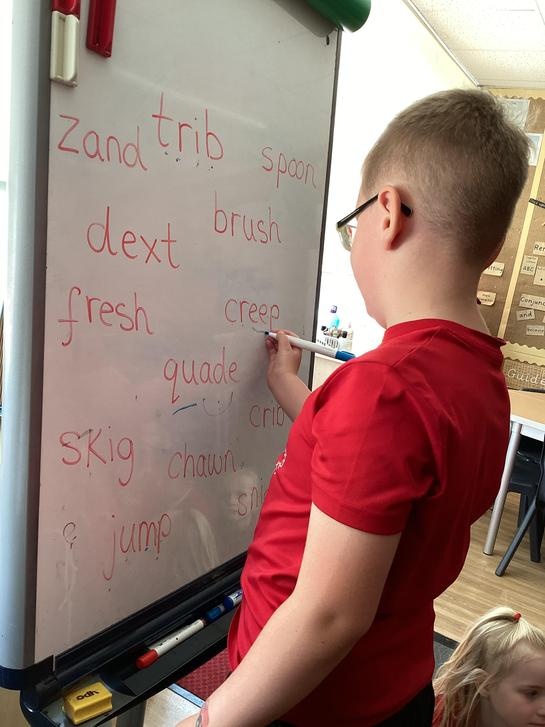 trib
zand
spoon
brush
dext
fresh
creep
quade
crib
skig
chawn
jump
ABC
and
Guide